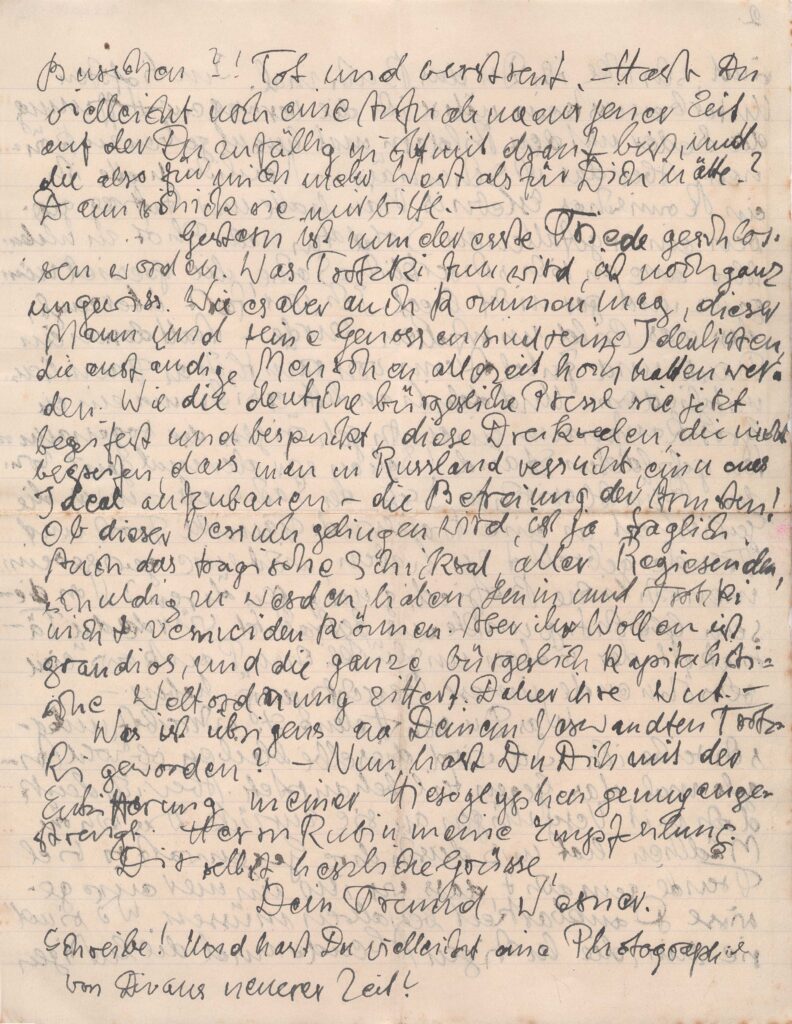 Burschen?! Tot und verstreut. – Hast Du
vielleicht noch eine Aufnahme aus jener Zeit
auf der Du zufällig nicht mit drauf bist, und
die also für mich mehr Wert als für Dich hätte?
Dann schick sie mir bitte. –
Gestern ist nun der erste Friede geschlos-
sen worden. Was Trotzki tun wird, ist noch ganz
ungewiss. Wie es aber auch kommen mag, dieser
Mann und seine Genossen sind reine Idealisten,
die anständige Menschen allezeit hoch halten wer-
den. Wie die deutsche bürgerliche Presse sie jetzt
begeifert und bespuckt, diese Dreckseelen, die nicht
begreifen, dass man in Russland versucht, ein neues
Ideal aufzubauen – die Befreiung der Armsten!
Ob dieser Versuch gelingen wird, ist ja fraglich.
Auch das tragische Schicksal aller Regierenden,
schuldig zu werden, haben Lenin und Trotzki
nicht vermeiden können. Aber ihr Wollen ist
grandios, und die ganze bürgerlich kapitalisti-
sche Weltordnung zittert. Daher ihre Wut –
Was ist übrigens aus Deinem Verwandten Trotz-
ki geworden? – Nun hast Du Dich mit der
Entzifferung meiner Hieroglyphen genug ange-
strengt. Herrn Rubin meine Empfehlung.
Dir selbst herzliche Grüsse,
Dein Freund, Werner.
Schreibe! Und hast Du vielleicht eine Photographie
von Dir aus neuerer Zeit?